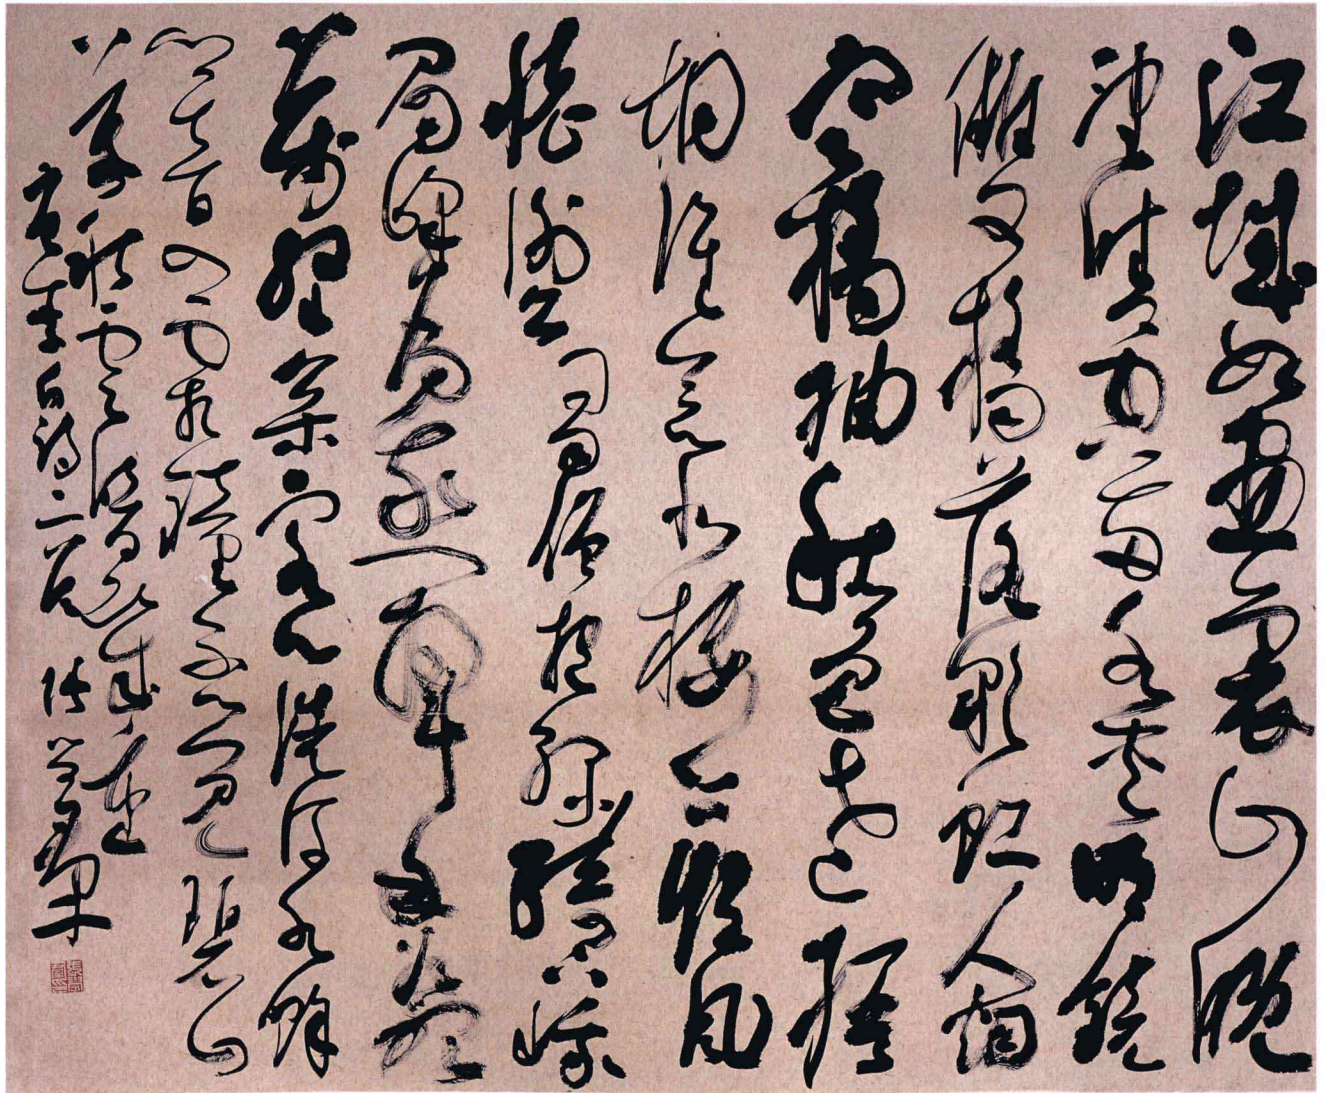 江城如畫裏山晚
望晴空兩水夾明鏡
雙橋落彩虹人烟
寒橘柚秋色老梧
桐誰念北樓上臨風
懷謝公蜀僧抱綠綺西下峨
眉峰為我一揮手如聽
萬壑松客心洗流水餘
響入霜鐘不覺碧山
暮秋雲暗幾重
唐李白詩二首 張